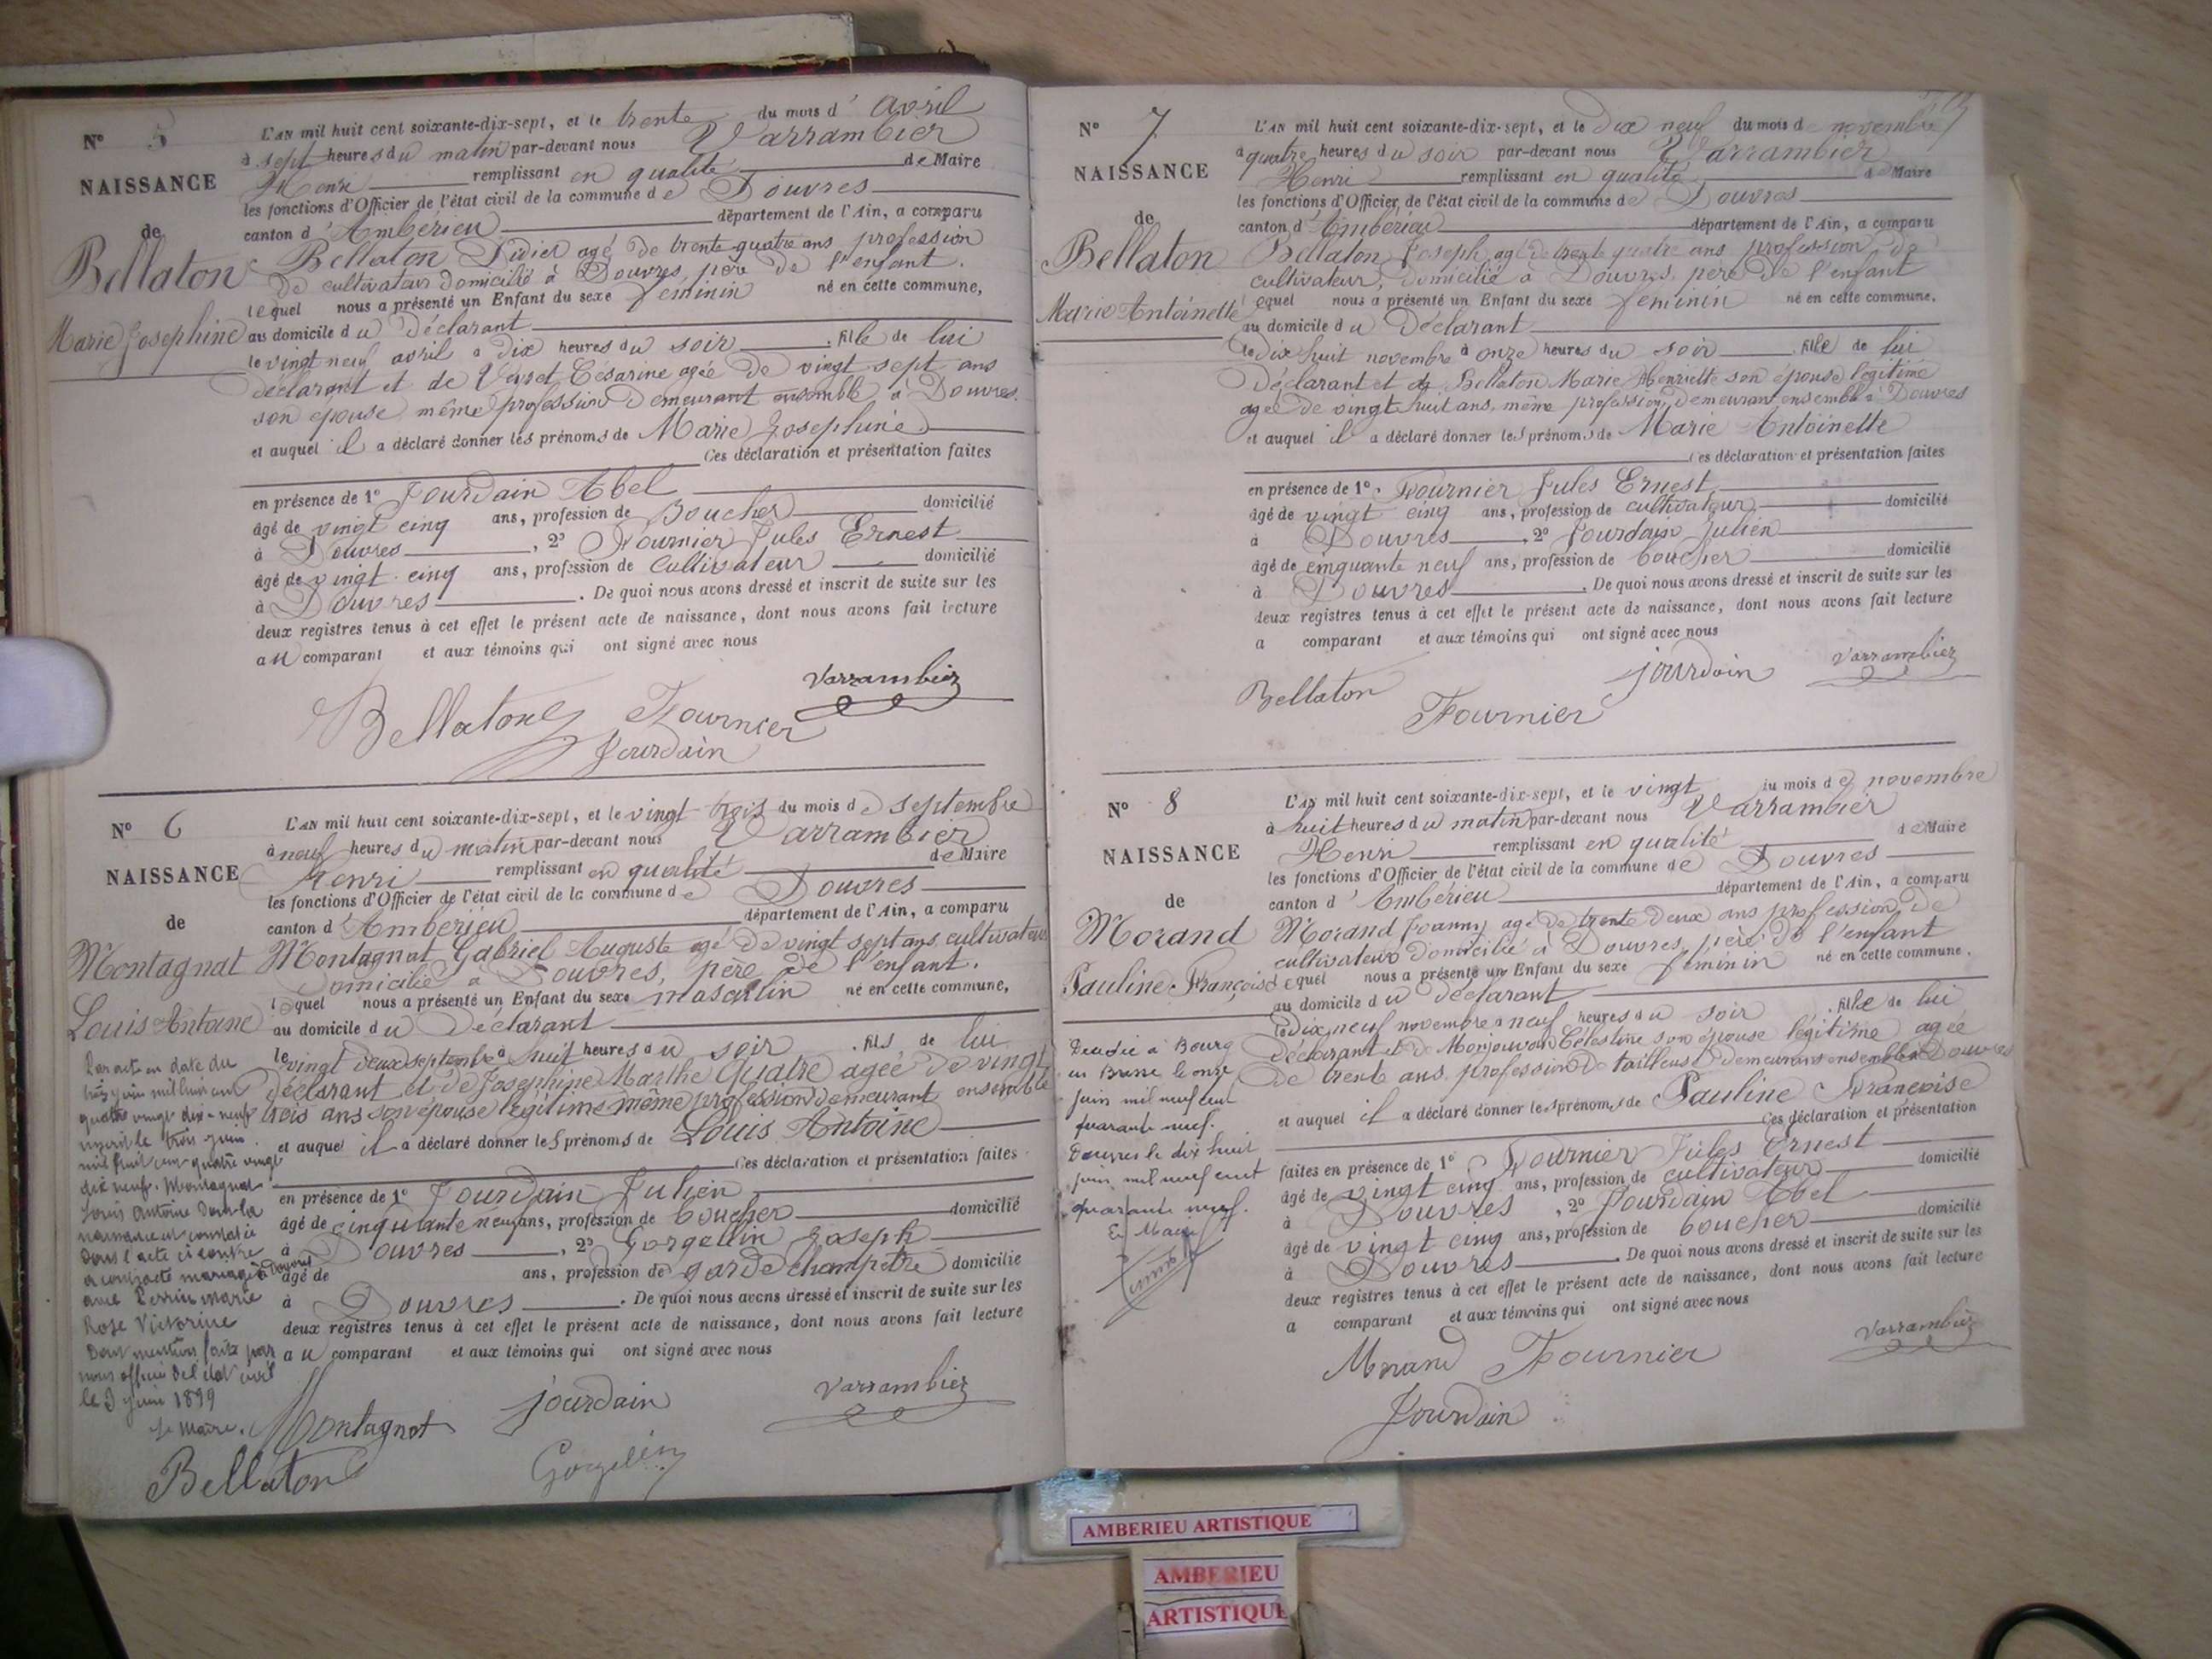 N° 5
NAISSANCE
de
Bellaton
Marie Josephine
L'AN mil huit cent soixante-dix-sept, et le trente du mois d' avril
à sept heures du matin par-devant nous Varrambier
Henri remplissant en qualité de Maire
les fonctions d'Officier de l'état civil de la commune de Douvres
canton d'Ambérieu département de l'Ain, a comparu
Bellaton Didier agé de trente quatre ans profession
de cultivateur domicilié à Douvres, père de l'enfant.
lequel nous a présenté un Enfant du sexe féminin né en cette commune,
au domicile du Déclarant
le vingt neuf avril à dix heures du soir, fille de lui
déclarant et de Césarine agée de vingt sept ans
son épouse même profession demeurant ensemble à Douvres.
et auquel il a déclaré donner les prénoms de Marie Josephine
Ces déclaration et présentation faites
en présence de 1° Jourdain Abel
âgé de vingt cinq ans, profession de Boucher domicilié
à Douvres, 2° Fournier Jules Ernest
âgé de vingt cinq ans, profession de Cultivateur domicilié
à Douvres. De quoi nous avons dressé et inscrit de suite sur les
deux registres tenus à cet effet le présent acte de naissance, dont nous avons fait lecture
au comparant et aux témoins qui ont signé avec nous
Varrambier
Bellaton Fournier
Jourdain
N° 6
NAISSANCE
de
Montagnat
Louis Antoine
L'AN mil huit cent soixante-dix-sept, et le vingt trois du mois de septembre
à neuf heures du matin par-devant nous Varrambier
Henri remplissant en qualité de Maire
les fonctions d'Officier de l'état civil de la commune de Douvres
canton d'Ambérieu département de l'Ain, a comparu
Montagnat Gabriel Auguste agé de vingt sept ans, cultivateur
domicilié à Douvres, père de l'enfant.
lequel nous a présenté un Enfant du sexe masculin né en cette commune,
au domicile du Déclarant
le vingt deux septembre à huit heures du soir, fils de lui
déclarant et de Josephine Marthe Quatre agée de vingt
trois ans son épouse légitime même profession demeurant ensemble
et auquel il a déclaré donner les prénoms de Louis Antoine
Ces déclaration et présentation faites
en présence de 1° Jourdain Julien
âgé de cinquante neuf ans, profession de boucher domicilié
à Douvres, 2° Gorgellin Joseph
âgé de ans, profession de garde champetre domicilié
à Douvres. De quoi nous avons dressé et inscrit de suite sur les
deux registres tenus à cet effet le présent acte de naissance, dont nous avons fait lecture
au comparant et aux témoins qui ont signé avec nous
Par acte en date du
trois juin mil huit cent
quatre vingt dix-neuf
inscrit le trois juin
mil huit cent quatre vingt
dix neuf. Montagnat
Louis Antoine dont la
naissance est constatée
dans l'acte ci contre
a contracté mariage à Douvres
avec Perrin Marie
Rose Victorine
Dont mention faite par
nous officier de l'état civil
le 3 juin 1899
Le Maire.
Bellaton
Montagnat Jourdain Varrambier
N° 7
NAISSANCE
de
Bellaton
Marie Antoinette
L'AN mil huit cent soixante-dix-sept, et le dix neuf du mois de novembre
à quatre heures du soir par-devant nous Varrambier
Henri remplissant en qualité de Maire
les fonctions d'Officier de l'état civil de la commune de Douvres
canton d'Ambérieu département de l'Ain, a comparu
Bellaton Joseph agé de trente quatre ans profession de
cultivateur, domicilié à Douvres, père de l'enfant
lequel nous a présenté un Enfant du sexe féminin né en cette commune,
au domicile du Déclarant
le dix huit novembre à onze heures du soir, fille de lui
Déclarant et de Bellaton Marie Henriette son épouse légitime
agée de vingt huit ans, même profession, demeurant ensemble à Douvres
et auquel il a déclaré donner les prénoms de Marie Antoinette
Ces déclaration et présentation faites
en présence de 1° Fournier Jules Ernest
âgé de vingt cinq ans, profession de cultivateur domicilié
à Douvres, 2° Jourdain Julien
âgé de cinquante neuf ans, profession de boucher domicilié
à Douvres. De quoi nous avons dressé et inscrit de suite sur les
deux registres tenus à cet effet le présent acte de naissance, dont nous avons fait lecture
a comparant et aux témoins qui ont signé avec nous
Bellaton Fournier Jourdain Varrambier
N° 8
NAISSANCE
de
Morand
Pauline Françoise
L'AN mil huit cent soixante-dix-sept, et le vingt du mois de novembre
à huit heures du matin par-devant nous Varrambier
Henri remplissant en qualité de Maire
les fonctions d'Officier de l'état civil de la commune de Douvres
canton d'Ambérieu département de l'Ain, a comparu
Morand Joanny agé de trente deux ans profession de
cultivateur domicilié à Douvres, père de l'enfant
lequel nous a présenté un Enfant du sexe féminin né en cette commune.
au domicile du déclarant
le dix neuf novembre à neuf heures du soir, fille de lui
déclarant et de Célestine son épouse légitime agée
de trente ans profession de tailleuse demeurans ensemble à Douvres
et auquel il a déclaré donner les prénoms de Pauline Françoise
Ces déclaration et présentation
faites en présence de 1° Fournier Jules Ernest
âgé de vingt cinq ans, profession de cultivateur domicilié
à Douvres, 2° Jourdain Abel
âgé de vingt cinq ans, profession de boucher domicilié
à Douvres. De quoi nous avons dressé et inscrit de suite sur les
deux registres tenus à cet effet le présent acte de naissance, dont nous avons fait lecture
a comparant et aux témoins qui ont signé avec nous
Décédée à Bourg
en Bresse le onze
juin mil neuf cent
quarante neuf.
Douvres le dix huit
juin mil neuf cent
quarante neuf.
Le Maire
Morand Fournier Varrambier
Jourdain
AMBERIEU ARTISTIQUE
AMBERIEU
ARTISTIQUE